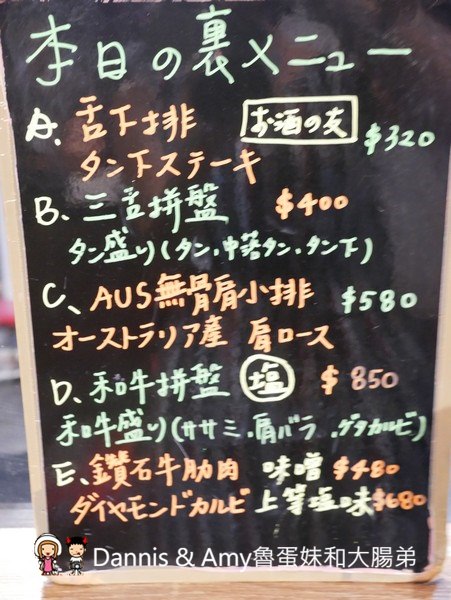 本日の裏メニュー
A. 舌下排 お酒の友 $320
タン下ステーキ
B、三立拼盤 $400
タン盛り(タン、中落タン、タン下)
C、AUS無骨肩小排 $580
オーストラリア産 肩ロース
D、和牛拼盤 塩 $850
和牛盛り(ササミ、肩バラ、ゲタカルビ)
E、鑽石牛肋肉 味噌 $480
ダイヤモンドカルビ 上等塩味 $680
Dannis & Amy魯蛋妹和大腸弟